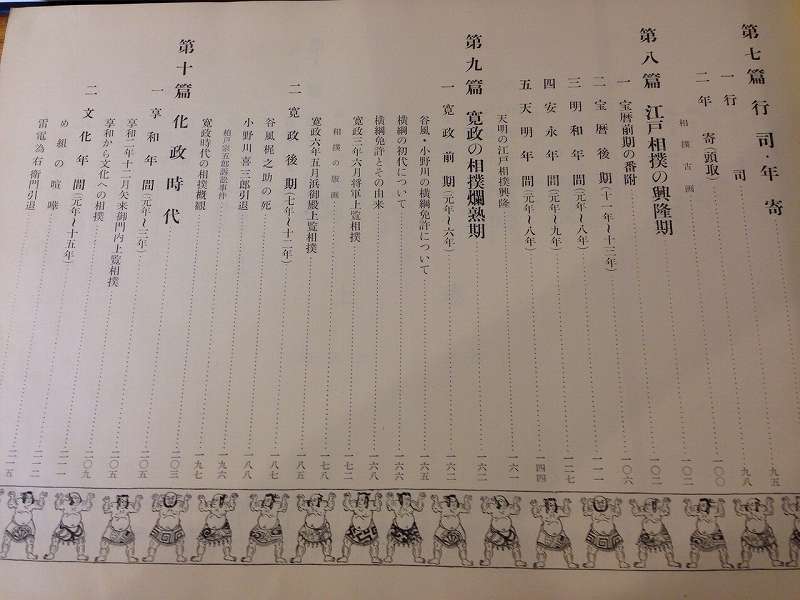 第七篇 行司・年寄 九五
一 行司 九八
二 年寄(頭取) 一〇〇
相撲古画 一〇二
第八篇 江戸相撲の興隆期 一〇二
一 宝暦前期の番附 一〇六
二 宝暦後期(十一年〜十三年) 一一一
三 明和年間(元年〜八年) 一二七
四 安永年間(元年〜九年) 一四四
五 天明年間(元年〜八年)
天明の江戸相撲興隆 一六一
第九篇 寛政の相撲爛熟期 一六二
一 寛政前期(元年〜六年) 一六二
谷風・小野川の横綱免許について 一六五
横綱の初代について 一六六
横綱免許とその由来 一六八
寛政三年六月将軍上覧相撲 一七二
相撲の版画 一七八
寛政六年五月浜御殿上覧相撲 一八五
二 寛政後期(七年〜十二年)
谷風梶之助の死 一八七
小野川喜三郎引退 一八八
柏戸宗五郎訴訟事件 一九六
寛政時代の相撲概観 一九七
第十篇 化政時代 二〇三
一 享和年間(元年〜三年) 二〇五
享和二年十二月矢来御門内上覧相撲 二〇五
享和から文化への相撲 二〇九
二 文化年間(元年〜十五年)
め組の喧嘩 二一一
雷電為右衛門引退 二一二
二一五